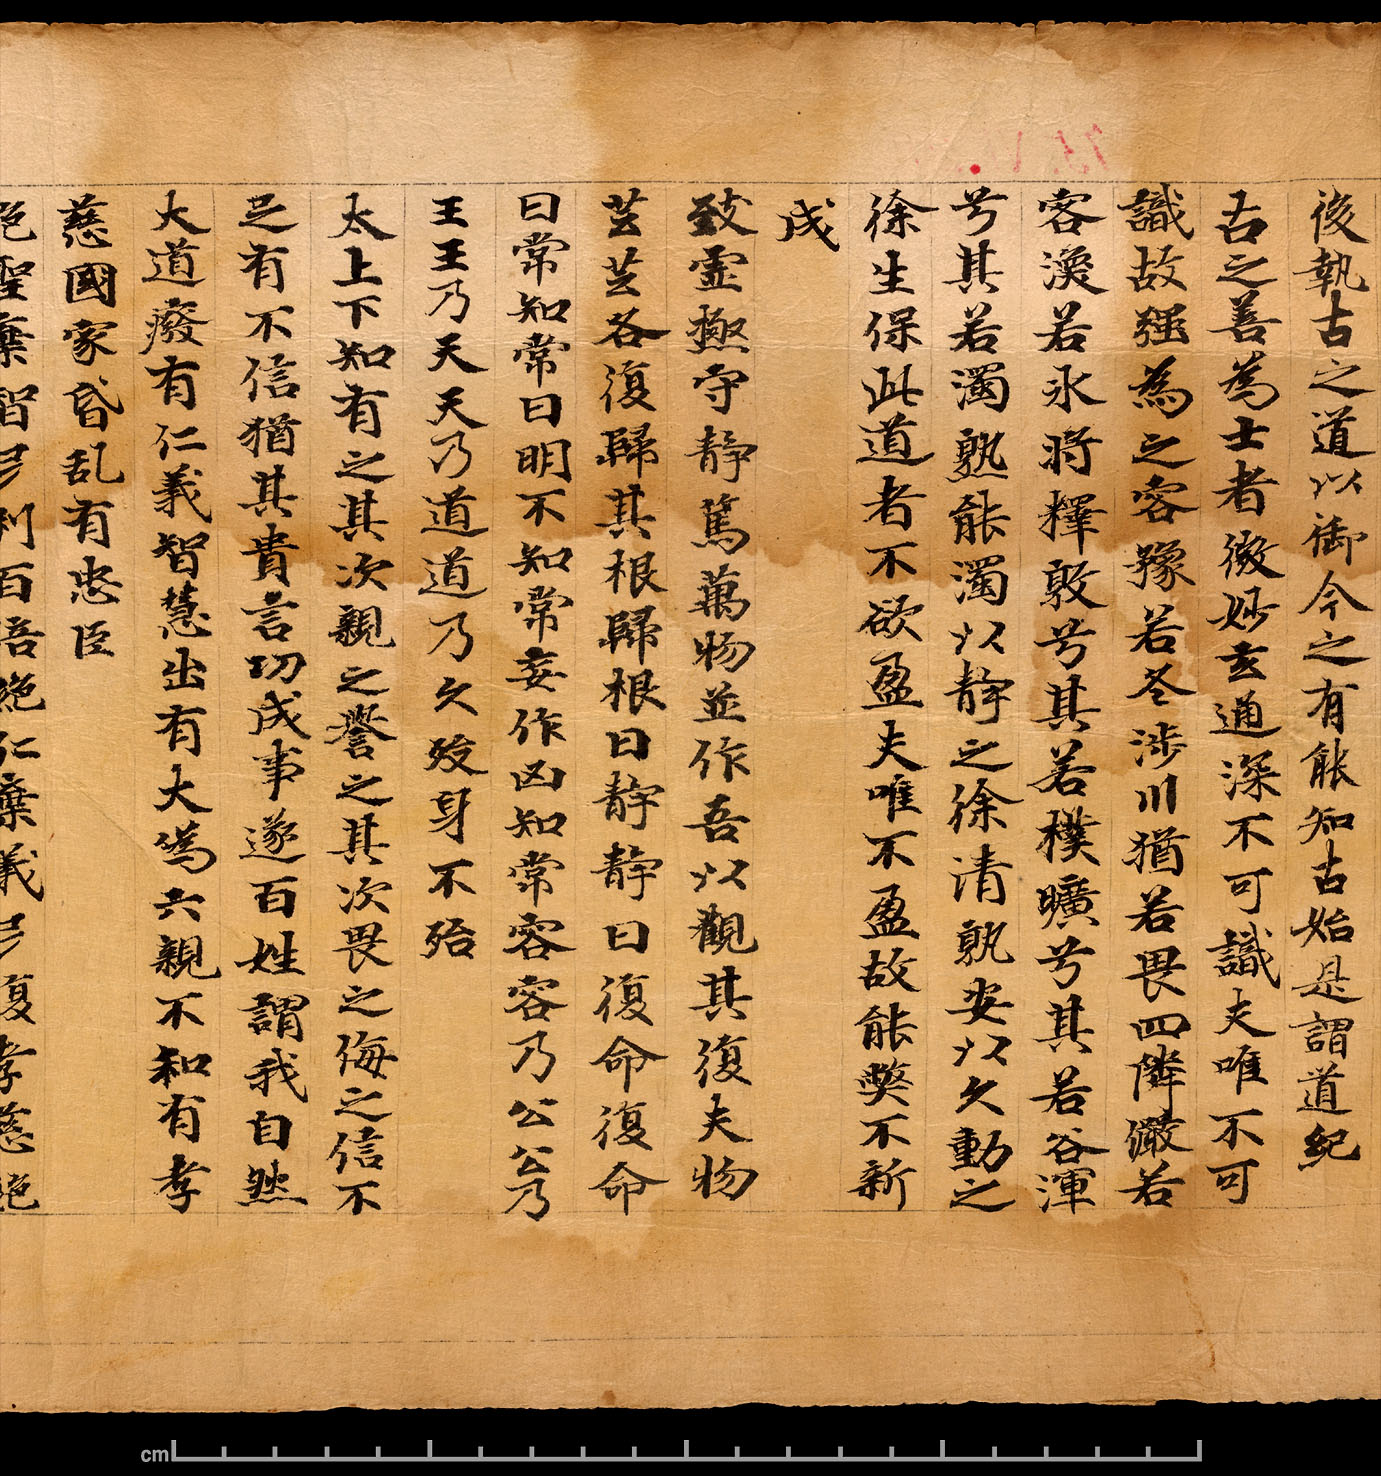 後執古之道以御今之有能知古始是謂道紀
古之善為士者微妙玄通深不可識夫唯不可
識故強為之容豫若冬涉川猶若畏四隣儼若
客渙若氷将釋敦兮其若樸曠兮其若谷渾
兮其若濁熟能濁以静之徐清孰安以久動之
徐生保此道者不欲盈夫唯不盈故能獘不新
成
致靈極守静篤萬物並作吾以觀其復夫物
芸芸各復歸其根歸根曰静静曰復命復命
曰常知常曰明不知常妄作凶知常容容乃公公乃
王王乃天天乃道道乃久歿身不殆
太上下知有之其次親之譽之其次畏之侮之信不
足有不信猶其貴言功成事遂百姓謂我自然
大道癈有仁義智慧出有大為六親不和有孝
慈國家昏乱有忠臣
絶聖棄智民利百倍絶仁棄義民復孝慈絶